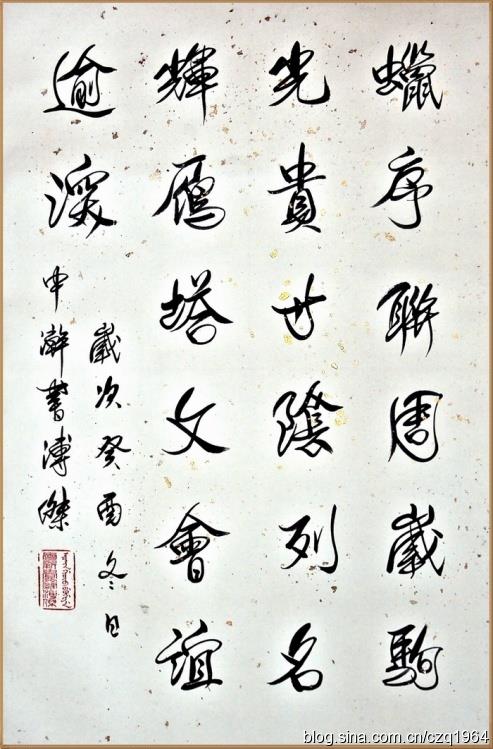 蠟序聯周歲駒
光貴寸陰列名
輝雁塔文會誼
逾深
歲次癸酉冬日
中澣書溥傑
blog.sina.com.cn/czq1964